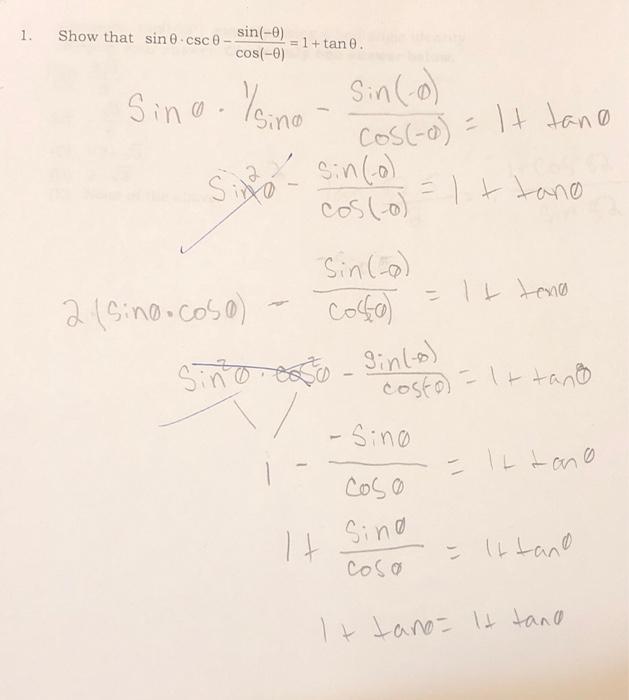 1. Show that sin θ · csc θ − sin(−θ)/cos(−θ) = 1 + tan θ.
Sin θ · 1/Sin θ − Sin(-θ)/cos(-θ) = 1 + tan θ
Sin²θ − Sin(-θ)/cos(-θ) = 1 + tan θ
2(Sin θ · cos θ) − Sin(-θ)/cos(-θ) = 1 + tan θ
Sin²θ · cos²θ − Sin(-θ)/cos(-θ) = 1 + tan θ
1 − -Sin θ/cos θ = 1 + tan θ
1 + Sin θ/cos θ = 1 + tan θ
1 + tan θ = 1 + tan θ